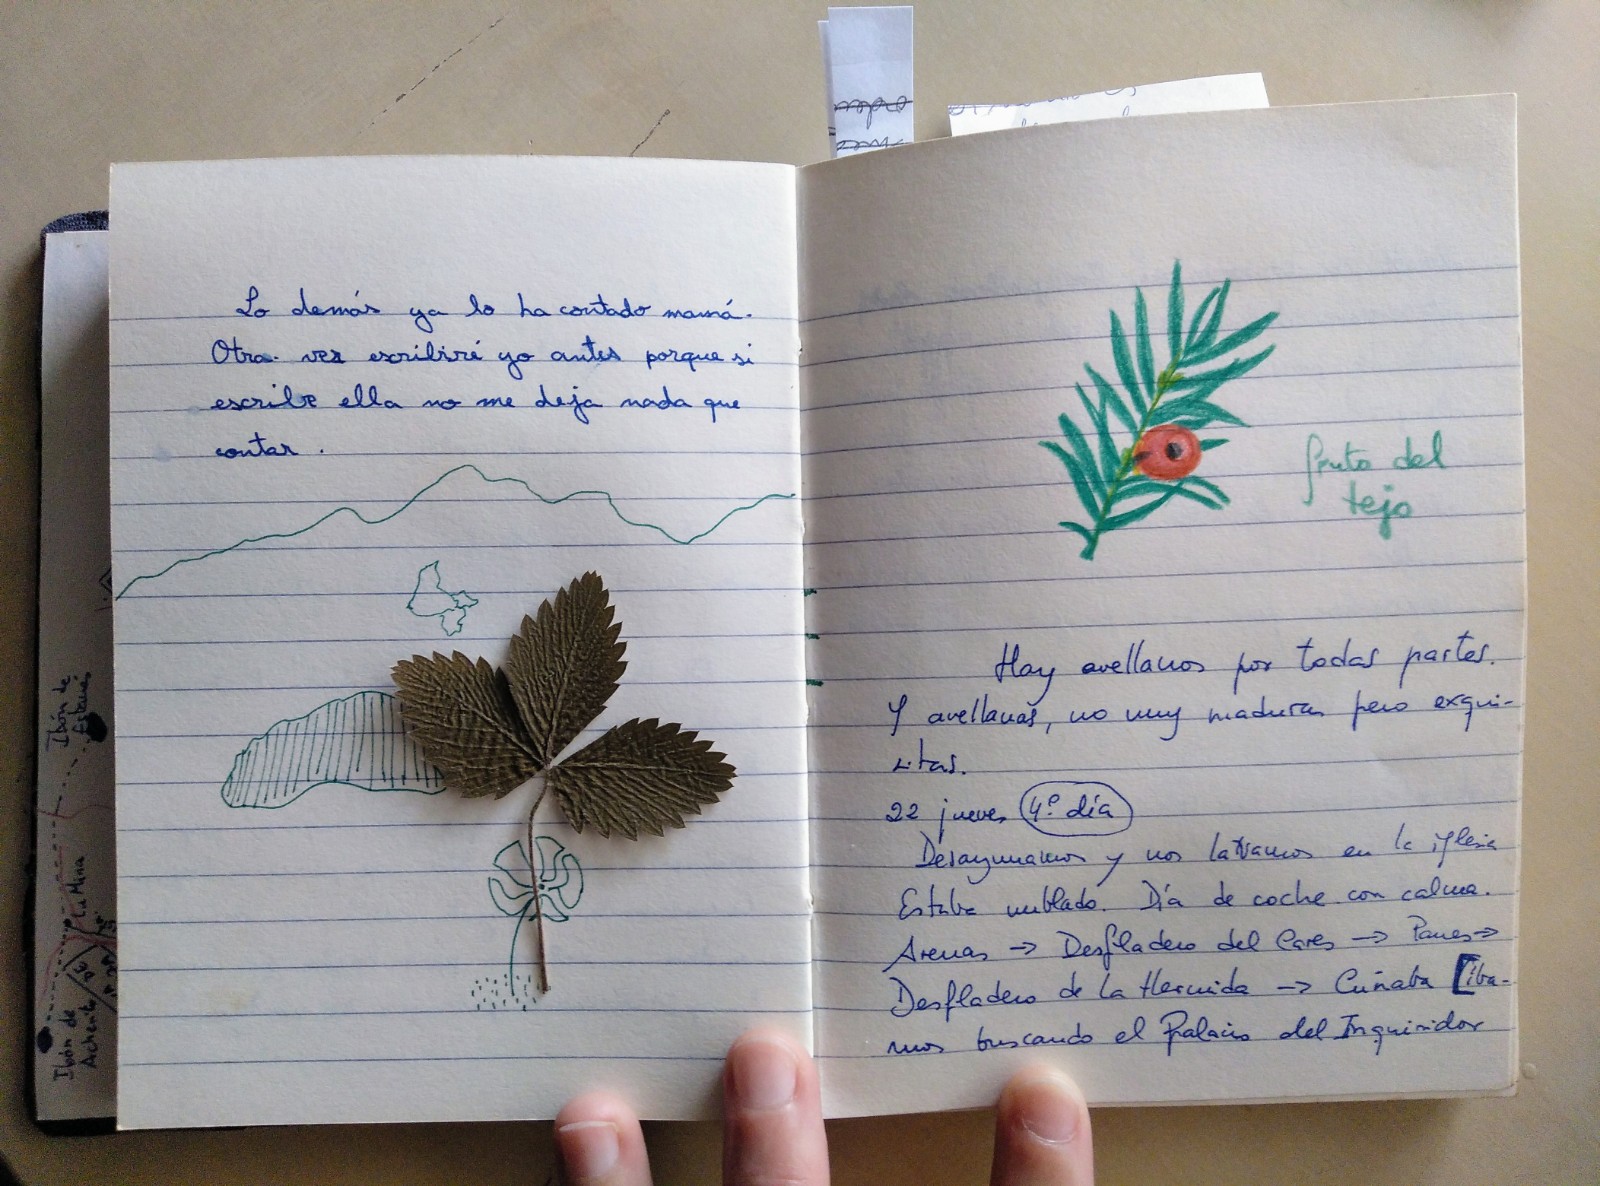 Lo demás ya lo ha contado mamá.
Otra vez escribiré yo antes porque si
escribe ella no me deja nada que
contar.
fruto del
tejo
Hay avellanos por todas partes.
Y avellanas, no muy maduras pero exqui-
sitas.
22 jueves 4º día
Desayunamos y nos lavamos en la iglesia
Estaba nublado. Día de coche con calma.
Arenas → Desfiladero del Cares → Panes →
Desfiladero de la Hermida → Cuñaba [íba-
mos buscando el Palacio del Inquisidor
Ibón de
Estanés
La Mina
Ibón de
Acherito